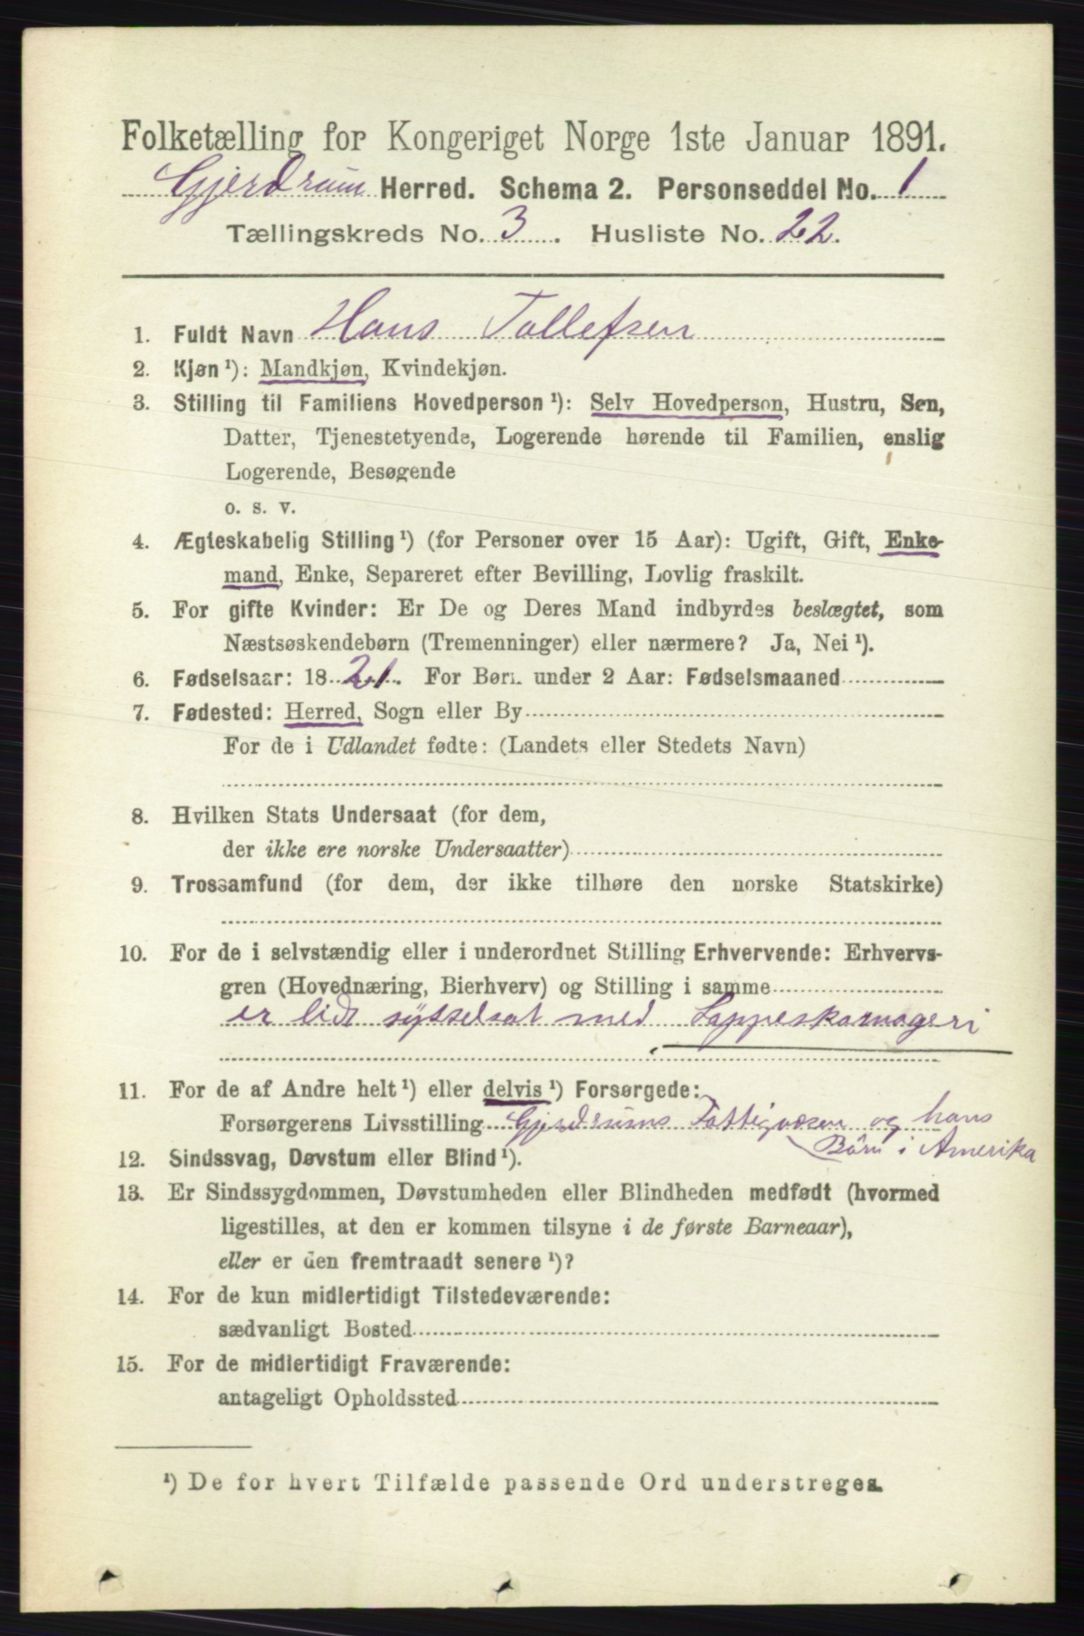 Folketælling for Kongeriget Norge 1ste Januar 1891.
Gjerdrum Herred. Schema 2. Personseddel No. 1
Tællingskreds No. 3. Husliste No. 22.
1. Fuldt Navn Hans Tollefsen
2. Kjøn ¹): Mandkjøn, Kvindekjøn.
3. Stilling til Familiens Hovedperson ¹): Selv Hovedperson, Hustru, Søn,
Datter, Tjenestetyende, Logerende hørende til Familien, enslig
Logerende, Besøgende
o. s. v.
4. Ægteskabelig Stilling ¹) (for Personer over 15 Aar): Ugift, Gift, Enke-
mand, Enke, Separeret efter Bevilling, Lovlig fraskilt.
5. For gifte Kvinder: Er De og Deres Mand indbyrdes beslægtet, som
Næstsøskendebørn (Tremenninger) eller nærmere? Ja, Nei ¹).
6. Fødselsaar: 1821. For Børn under 2 Aar: Fødselsmaaned
7. Fødested: Herred, Sogn eller By
For de i Udlandet fødte: (Landets eller Stedets Navn)
8. Hvilken Stats Undersaat (for dem,
der ikke ere norske Undersaatter)
9. Trossamfund (for dem, der ikke tilhøre den norske Statskirke)
10. For de i selvstændig eller i underordnet Stilling Erhvervende: Erhvervs-
gren (Hovednæring, Bierhverv) og Stilling i samme
er lidt sysselsat med Lappeskomageri
11. For de af Andre helt ¹) eller delvis ¹) Forsørgede:
Forsørgerens Livsstilling Gjerdrums Fattigvæsen og hans
Børn i Amerika
12. Sindssvag, Døvstum eller Blind ¹).
13. Er Sindssygdommen, Døvstumheden eller Blindheden medfødt (hvormed
ligestilles, at den er kommen tilsyne i de første Barneaar),
eller er den fremtraadt senere ¹)?
14. For de kun midlertidigt Tilstedeværende:
sædvanligt Bosted
15. For de midlertidigt Fraværende:
antageligt Opholdssted
¹) De for hvert Tilfælde passende Ord understreges.